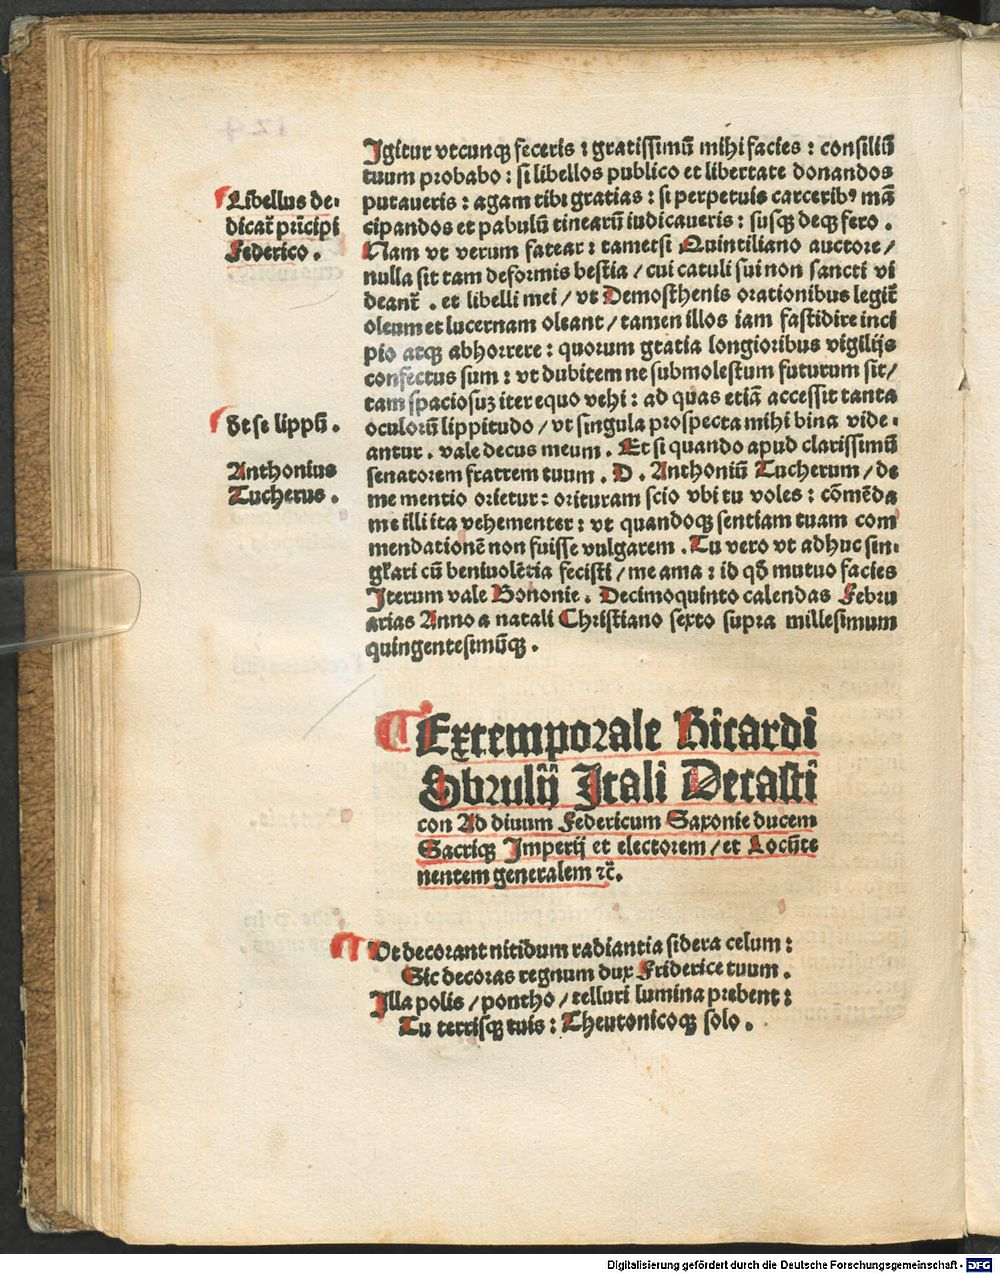 Igitur vtcunqꝫ feceris : gratissimū mihi facies : consiliū
tuum probabo : si libellos publico et libertate donandos
putaueris : agam tibi gratias : si perpetuis carceribꝰ mā
cipandos et pabulū tinearū iudicaueris : susqꝫ deqꝫ fero .
Nam vt verum fatear : tametsi Quintiliano auctore /
nulla sit tam deformis bestia / cui catuli sui non sancti vi
deant᷑ . et libelli mei / vt Demosthenis orationibus legit᷑
oleum et lucernam oleant / tamen illos iam fastidire inci
pio atqꝫ abhorrere : quorum gratia longioribus vigilijs
confectus sum : vt dubitem ne submolestum futurum sit /
tam spaciosuꝫ iter equo vehi : ad quas etiā accessit tanta
oculorū lippitudo / vt singula prospecta mihi bina vide-
antur . vale decus meum . Et si quando apud clarissimū
senatorem fratrem tuum . D . Anthoniū Tucherum / de
me mentio orietur : orituram scio vbi tu voles : cōmēda
me illi ita vehementer : vt quandoqꝫ sentiam tuam com
mendationē non fuisse vulgarem . Tu vero vt adhuc sin-
gĺari cū beniuolētia fecisti / me ama : id qđ mutuo facies
Iterum vale Bononie . Decimoquinto calendas Febru
arias Anno a natali Christiano sexto supra millesimum
quingentesimūqꝫ .
Libellus de-
dicat᷑ prīcipi
Federico .
De se lippū .
Anthonius
Tucherus .
Extemporale Ricardi
Sbrulij Itali Decasti
con Ad diuum Federicum Saxonie ducem
Sacriqꝫ Imperij et electorem / et Locūte
nentem generalem ⁊c̄.
Ut decorant nitidum radiantia sidera celum :
Sic decoras regnum dux Friderice tuum .
Illa polis / pontho / telluri lumina prebent :
Tu terrisqꝫ tuis : Theutonicoqꝫ solo .
Digitalisierung gefördert durch die Deutsche Forschungsgemeinschaft - DFG